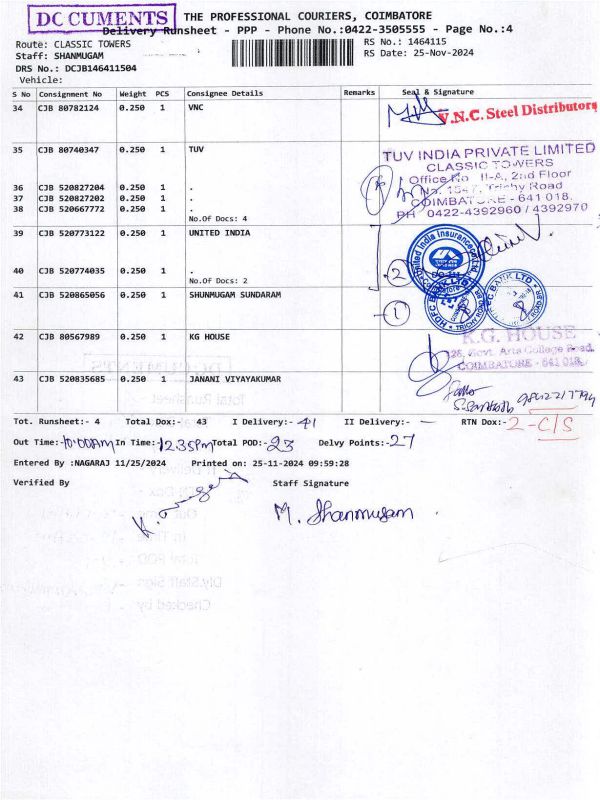 DOCUMENTS
THE PROFESSIONAL COURIERS, COIMBATORE
Delivery Runsheet - PPP - Phone No.:0422-3505555 - Page No.:4
Route: CLASSIC TOWERS
RS No.: 1464115
Staff: SHANMUGAM
RS Date: 25-Nov-2024
DRS No.: DCJB146411504
Vehicle:
S No Consignment No Weight PCS Consignee Details Remarks Seal & Signature
34 CJB 80782124 0.250 1 VNC
V.N.C. Steel Distributors
35 CJB 80740347 0.250 1 TUV
TUV INDIA PRIVATE LIMITED
CLASSIC TOWERS
Office No II-A, 2nd Floor
No. 1547, Trichy Road
COIMBATORE - 641 018.
PH 0422-4392960 / 4392970
36 CJB 520827204 0.250 1 .
37 CJB 520827202 0.250 1 .
38 CJB 520667772 0.250 1 .
No.Of Docs: 4
39 CJB 520773122 0.250 1 UNITED INDIA
United India Insurance
40 CJB 520774035 0.250 1 .
No.Of Docs: 2
2
HDFC BANK LTD
TRICHY ROAD
41 CJB 520865056 0.250 1 SHUNMUGAM SUNDARAM
1
42 CJB 80567989 0.250 1 KG HOUSE
K.G. HOUSE
Govt. Arts College Road,
COIMBATORE - 641 018.
43 CJB 520835685 0.250 1 JANANI VIYAYAKUMAR
Tot. Runsheet:- 4 Total Dox:- 43 I Delivery:- 41 II Delivery:- — RTN Dox:- 2 - C/S
Out Time:- 10:00AM In Time:- 12.35PM Total POD:- 23 Delvy Points:- 27
Entered By :NAGARAJ 11/25/2024 Printed on: 25-11-2024 09:59:28
Verified By Staff Signature
M. Shanmugam